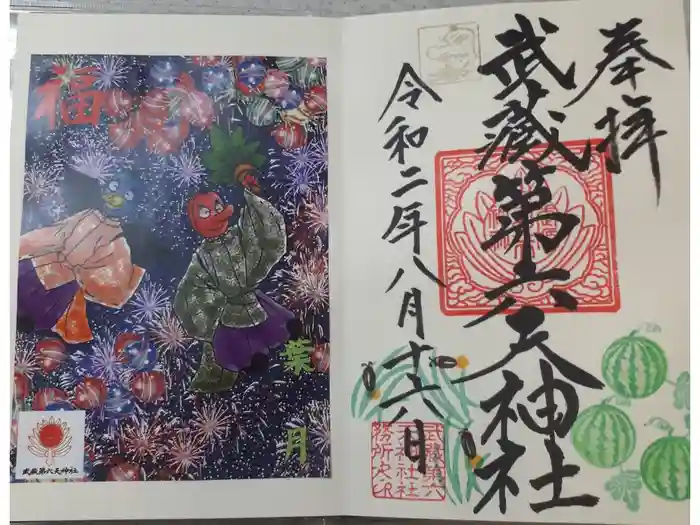 奉拝
武蔵第六天神社
令和二年八月十六日
武蔵第六
天神社社
務所之印
福
葉月
武蔵第六天神社